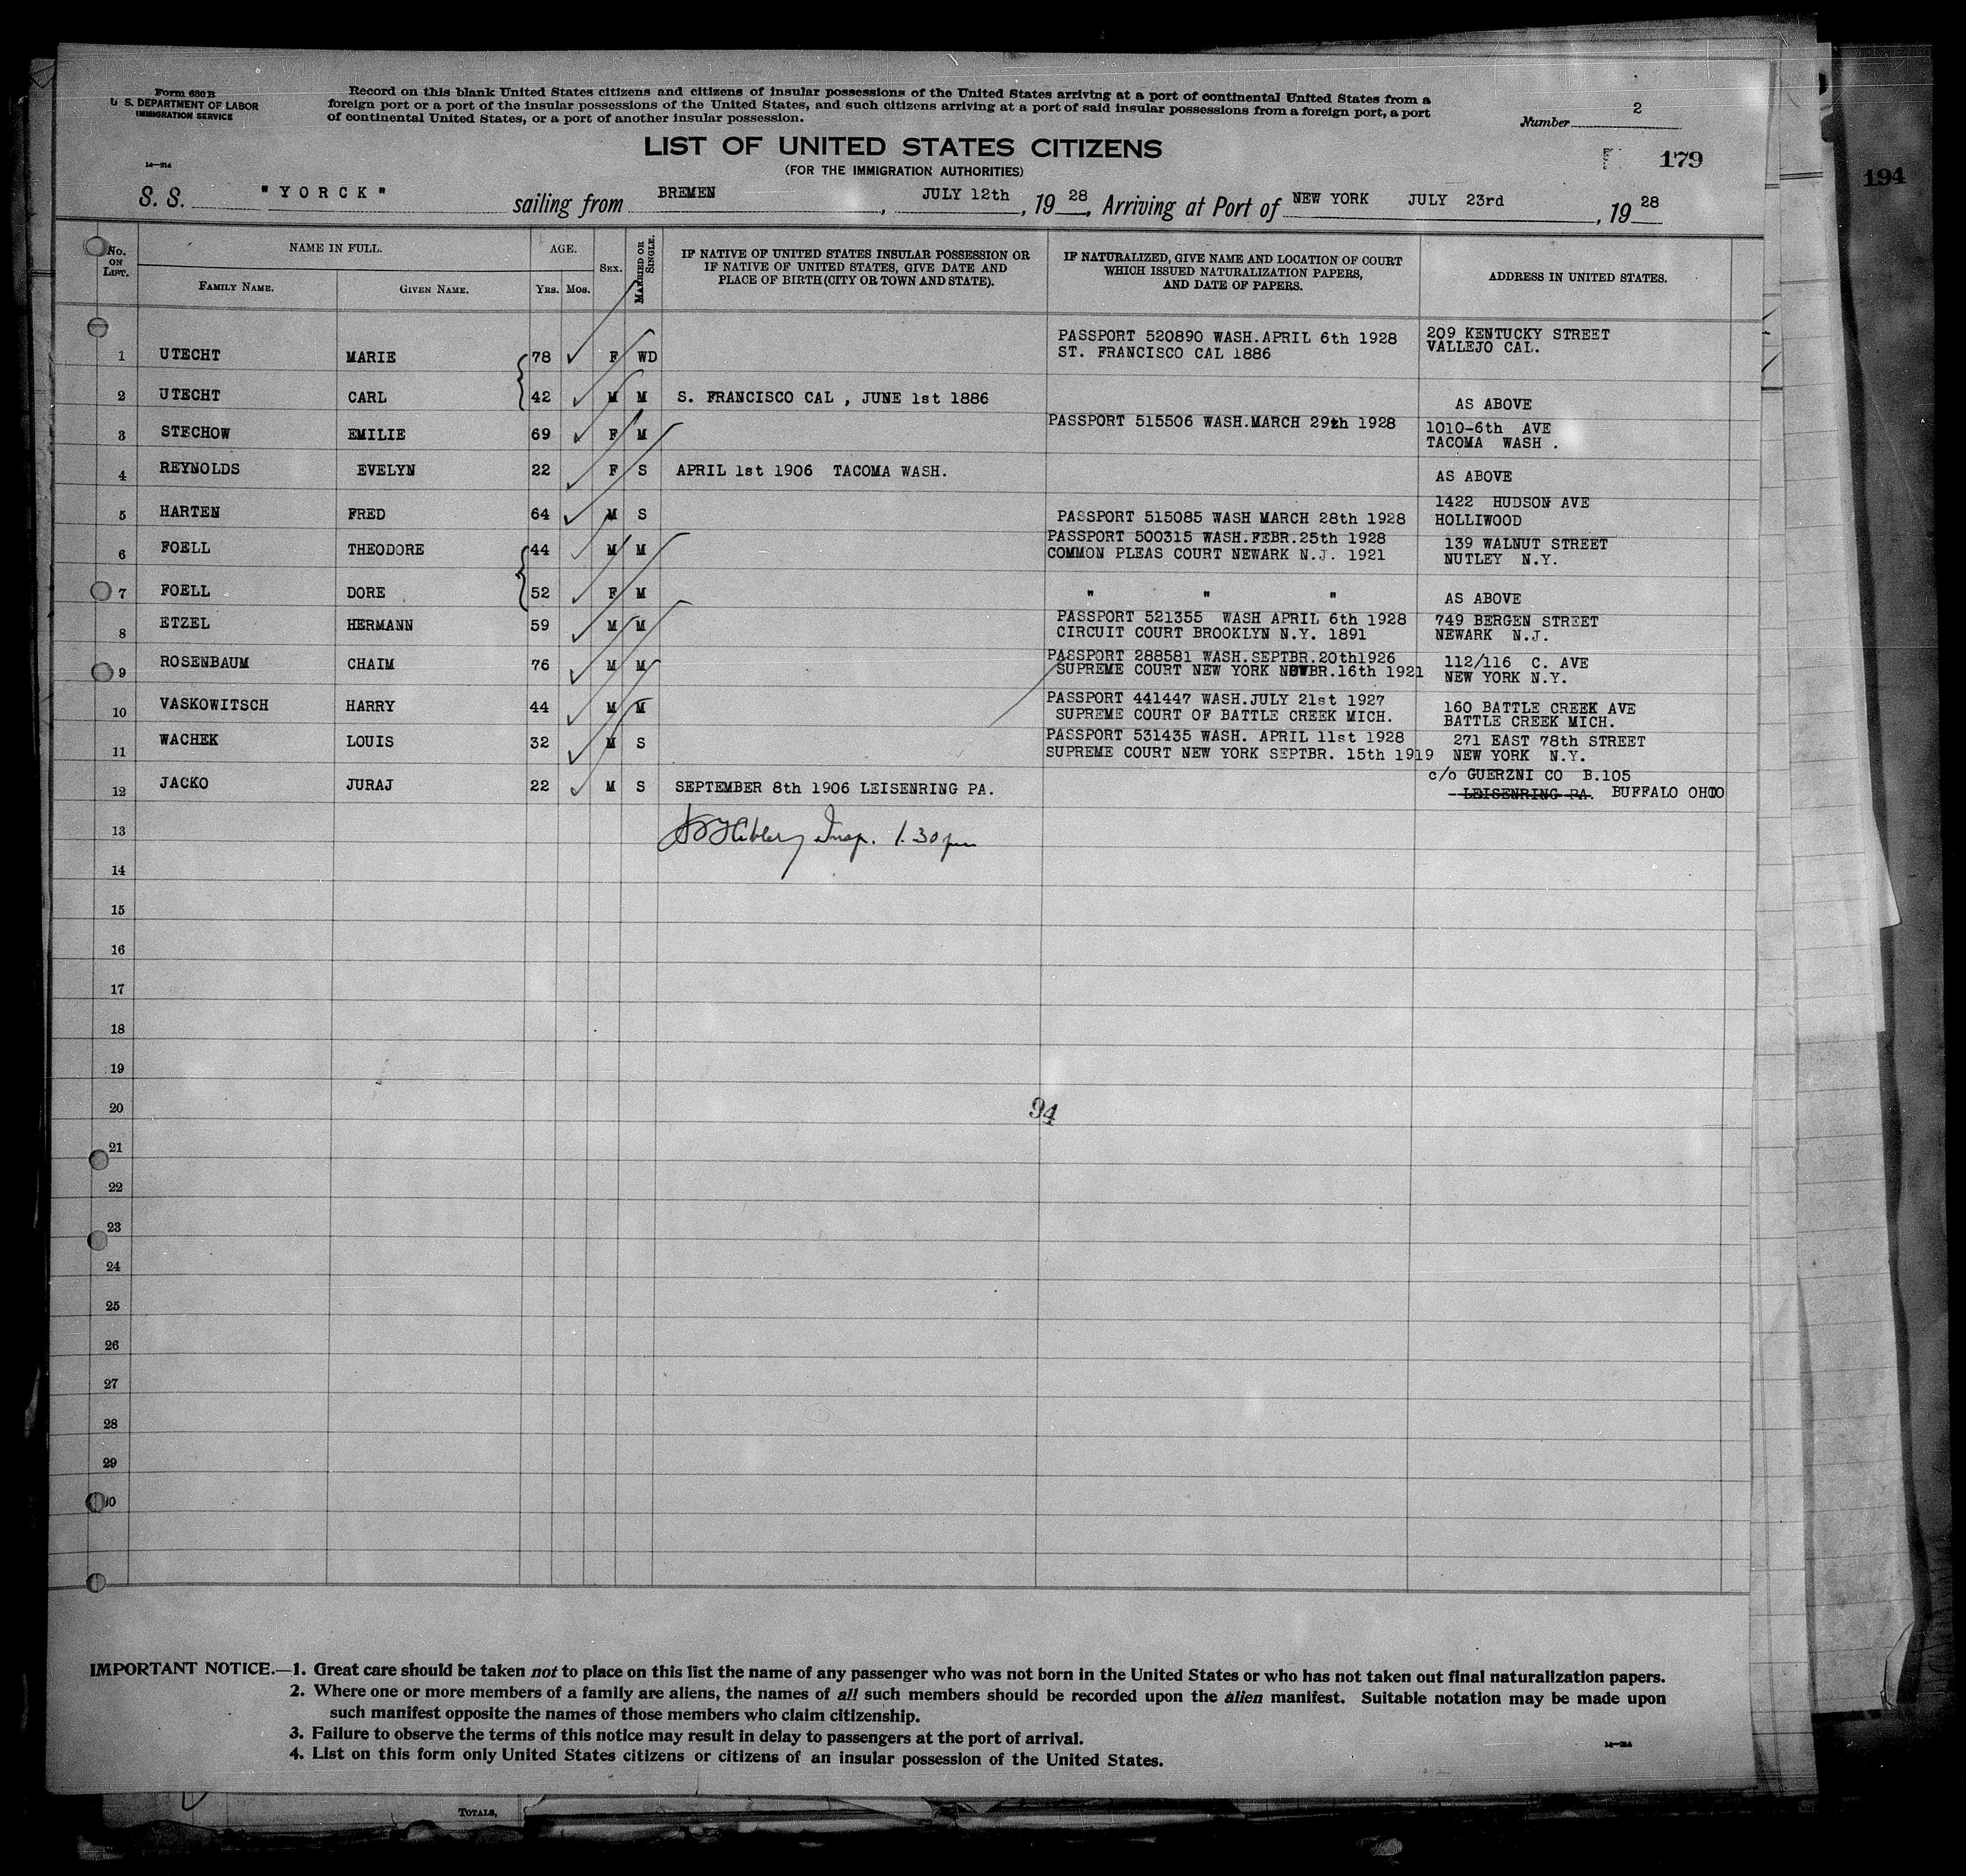 Form 630 B
U. S. DEPARTMENT OF LABOR
IMMIGRATION SERVICE
14—214
Record on this blank United States citizens and citizens of insular possessions of the United States arriving at a port of continental United States from a
foreign port or a port of the insular possessions of the United States, and such citizens arriving at a port of said insular possessions from a foreign port, a port
of continental United States, or a port of another insular possession.
Number 2
LIST OF UNITED STATES CITIZENS
(FOR THE IMMIGRATION AUTHORITIES)
179
194
S. S. "YORCK" sailing from BREMEN, JULY 12th, 1928, Arriving at Port of NEW YORK JULY 23rd, 1928
No. ON LIST. NAME IN FULL. FAMILY NAME. GIVEN NAME. AGE. YRS. MOS. SEX. MARRIED OR SINGLE. IF NATIVE OF UNITED STATES INSULAR POSSESSION OR IF NATIVE OF UNITED STATES, GIVE DATE AND PLACE OF BIRTH (CITY OR TOWN AND STATE). IF NATURALIZED, GIVE NAME AND LOCATION OF COURT WHICH ISSUED NATURALIZATION PAPERS, AND DATE OF PAPERS. ADDRESS IN UNITED STATES.
1 UTECHT MARIE 78 F WD PASSPORT 520890 WASH.APRIL 6th 1928 ST. FRANCISCO CAL 1886 209 KENTUCKY STREET VALLEJO CAL.
2 UTECHT CARL 42 M M S. FRANCISCO CAL , JUNE 1st 1886 AS ABOVE
3 STECHOW EMILIE 69 F M PASSPORT 515506 WASH.MARCH 29th 1928 1010-6th AVE TACOMA WASH .
4 REYNOLDS EVELYN 22 F S APRIL 1st 1906 TACOMA WASH. AS ABOVE
5 HARTEN FRED 64 M S PASSPORT 515085 WASH MARCH 28th 1928 1422 HUDSON AVE HOLLIWOOD
6 FOELL THEODORE 44 M M PASSPORT 500315 WASH.FEBR.25th 1928 COMMON PLEAS COURT NEWARK N.J. 1921 139 WALNUT STREET NUTLEY N.Y.
7 FOELL DORE 52 F M " " " AS ABOVE
8 ETZEL HERMANN 59 M M PASSPORT 521355 WASH APRIL 6th 1928 CIRCUIT COURT BROOKLYN N.Y. 1891 749 BERGEN STREET NEWARK N.J.
9 ROSENBAUM CHAIM 76 M M PASSPORT 288581 WASH.SEPTBR.20th1926 SUPREME COURT NEW YORK NOVBR.16th 1921 112/116 C. AVE NEW YORK N.Y.
10 VASKOWITSCH HARRY 44 M M PASSPORT 441447 WASH.JULY 21st 1927 SUPREME COURT OF BATTLE CREEK MICH. 160 BATTLE CREEK AVE BATTLE CREEK MICH.
11 WACHEK LOUIS 32 M S PASSPORT 531435 WASH. APRIL 11st 1928 SUPREME COURT NEW YORK SEPTBR. 15th 1919 271 EAST 78th STREET NEW YORK N.Y.
12 JACKO JURAJ 22 M S SEPTEMBER 8th 1906 LEISENRING PA. c/o GUERZNI CO B.105 LEISENRING PA. BUFFALO OHIO
13 Insp. 1.30 pm
14
15
16
17
18
19
20
94
21
22
23
24
25
26
27
28
29
30
IMPORTANT NOTICE.—1. Great care should be taken not to place on this list the name of any passenger who was not born in the United States or who has not taken out final naturalization papers.
2. Where one or more members of a family are aliens, the names of all such members should be recorded upon the alien manifest. Suitable notation may be made upon
such manifest opposite the names of those members who claim citizenship.
3. Failure to observe the terms of this notice may result in delay to passengers at the port of arrival.
4. List on this form only United States citizens or citizens of an insular possession of the United States.
14—214
TOTALS,